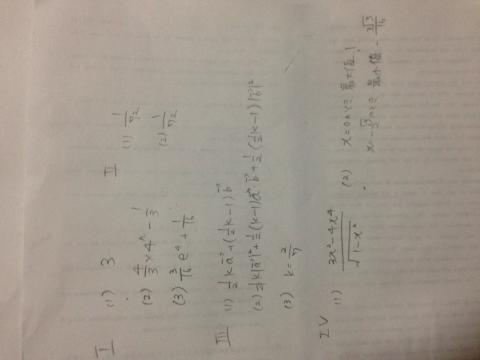 I
(1) 3
(2) 4/3 × 4^n - 1/3
(3) 3/16 e^4 + 1/16
II
(1) 1/72
(2) 1/72
III
(1) 1/2 k a⃗ + (1/2 k - 1) b⃗
(2) 1/4 k |a⃗|² + 1/2 (k-1) a⃗·b⃗ + 1/2 (1/2 k - 1) |b⃗|²
(3) k = 2/7
IV
(1) 3x² - 4x⁴ / √1-x²
(2) x = 0 のとき 最大値 1
のとき 最小値 - 3√3/16